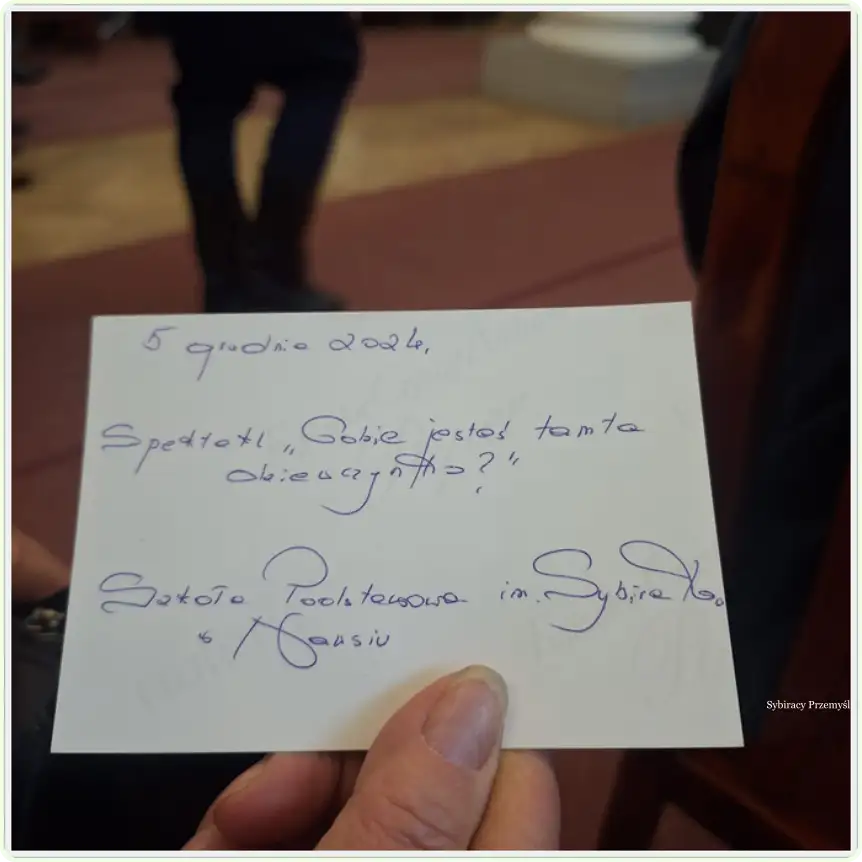 5 grudnia 2024.
Spektakl „Gdzie jesteś tamta
dziewczynko?"
Szkoła Podstawowa im. Sybiraków
w Nansiu
Sybiracy Przemyśl